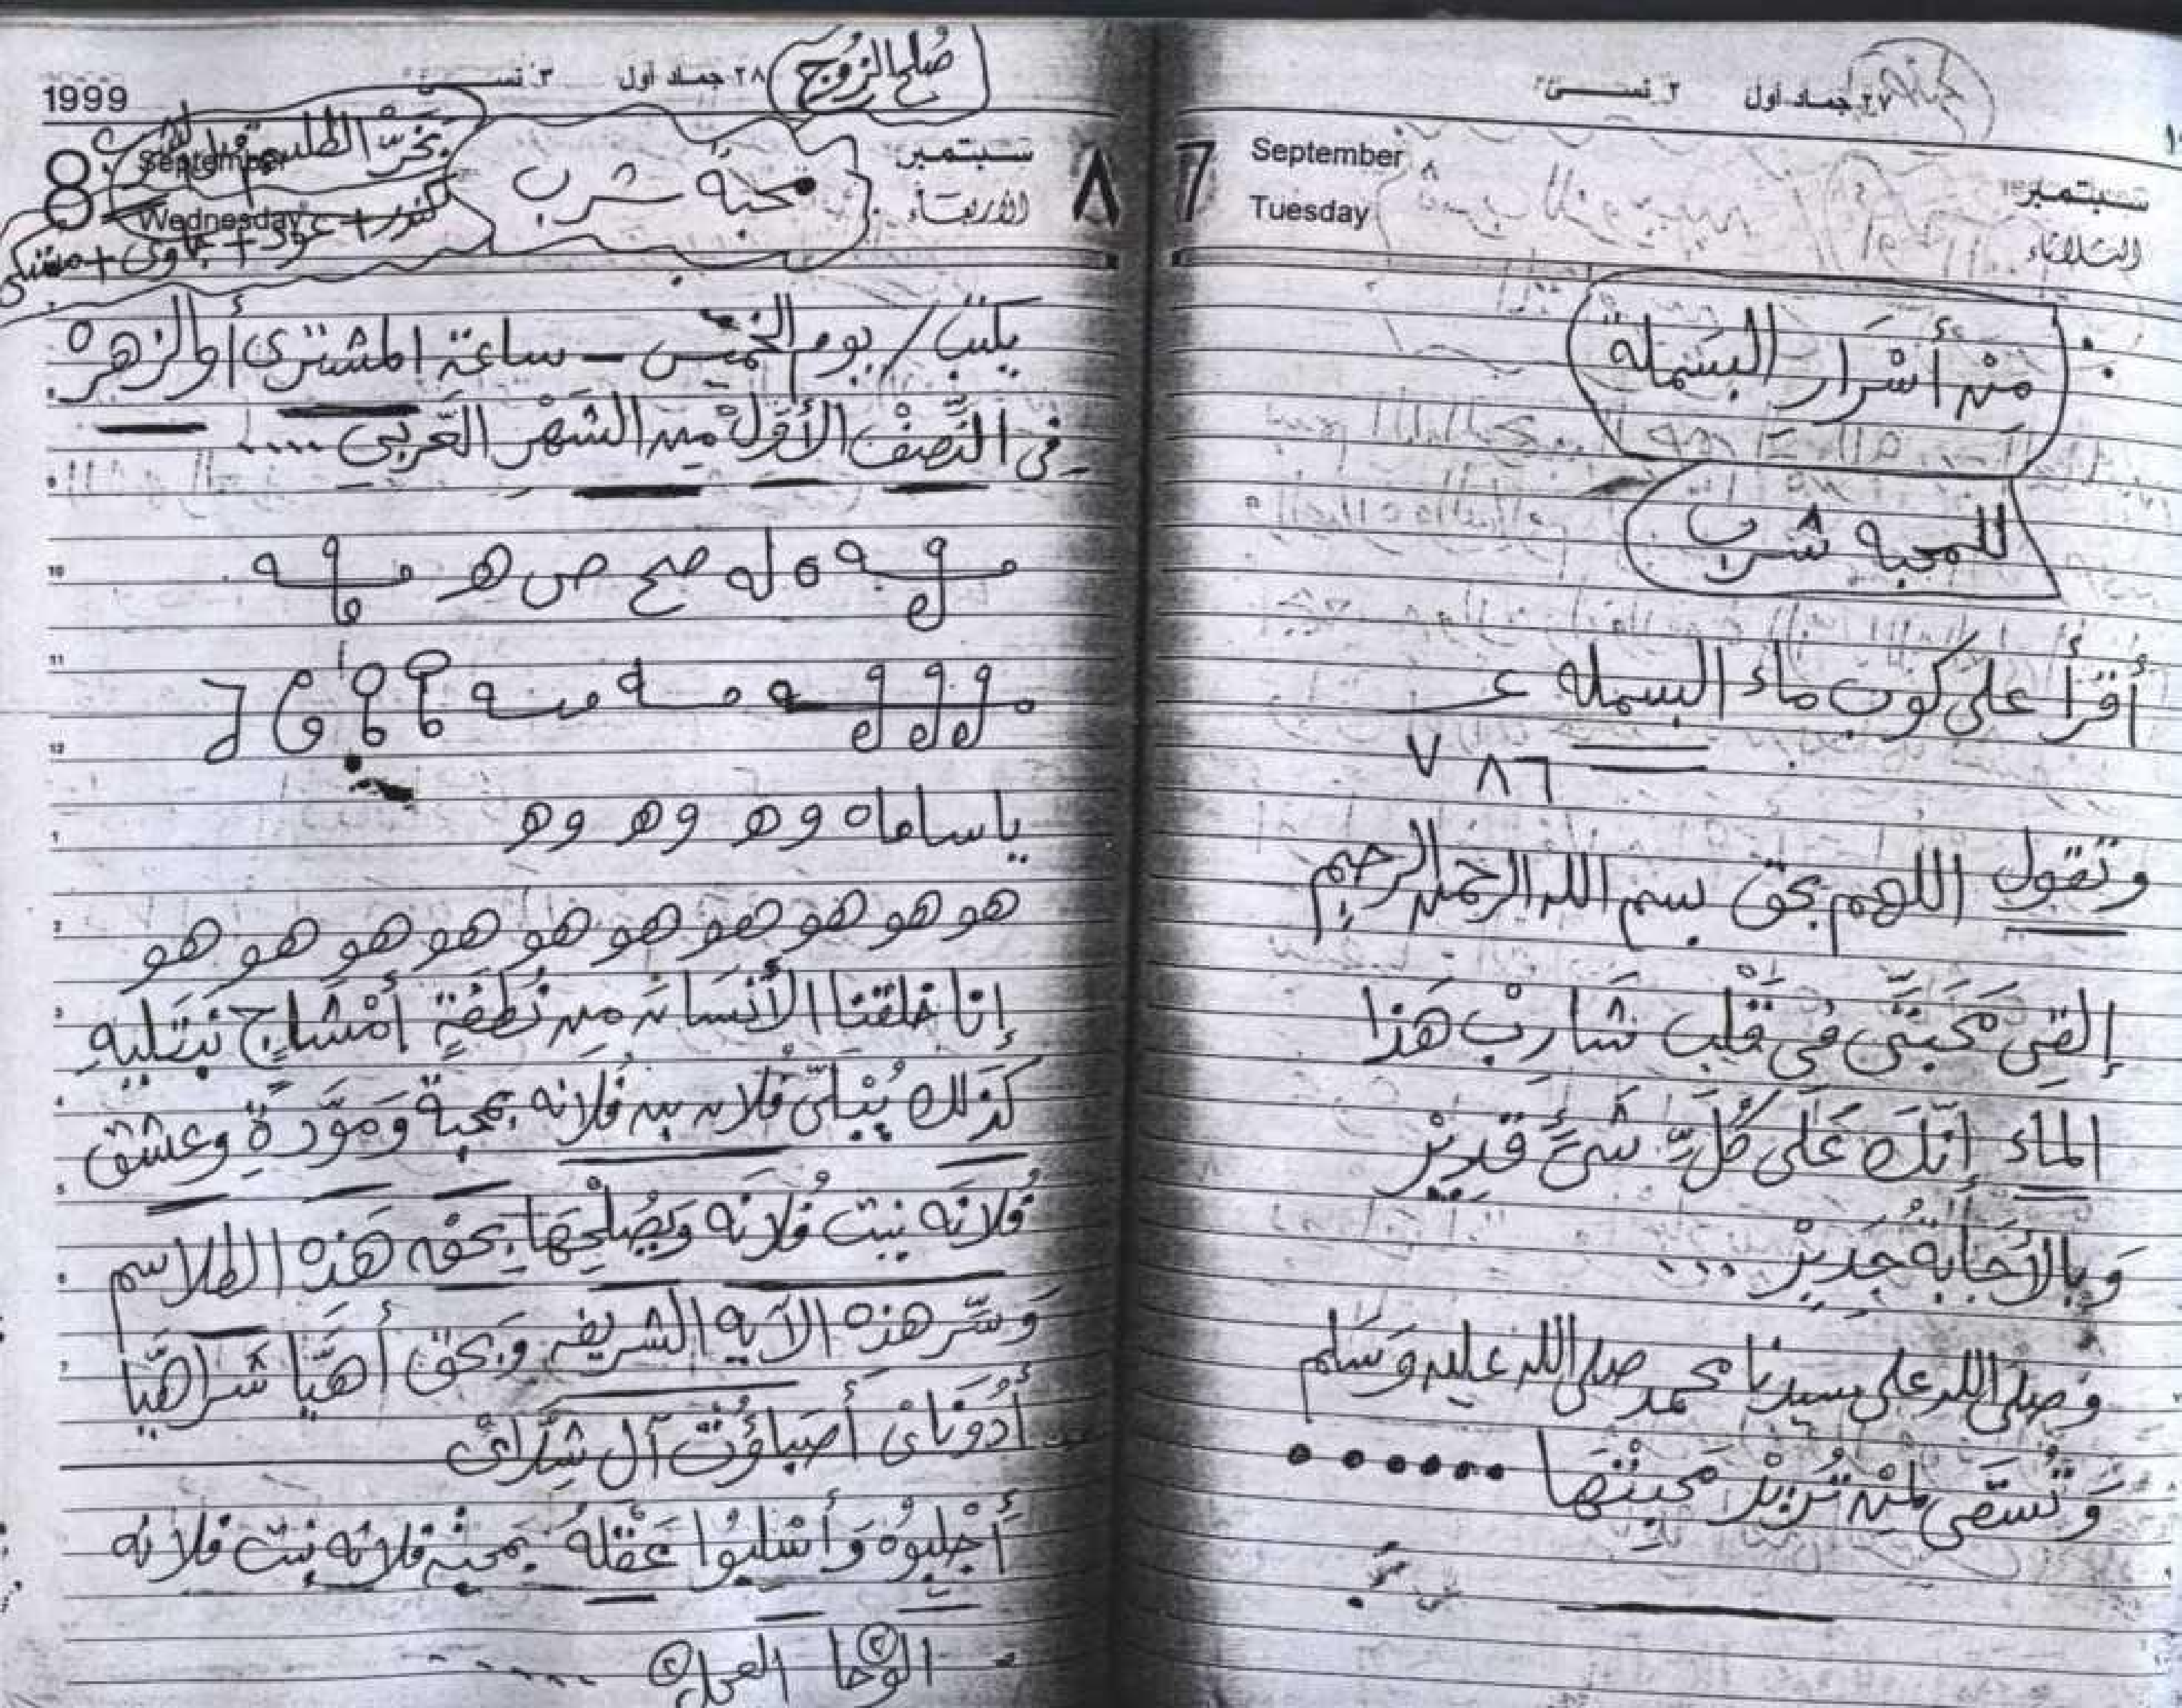 ٢٧ جماد أول ٢ نسئ
7 September
Tuesday
سبتمبر
الثلاثاء
من أسْرَار البسملة
للمحبه شرب
أقرأ على كوب ماء البسمله عـــ
٧٨٦
وتقول اللهم بحق بسم الله الرحمن الرحيم
إلقي محَبَتَّى في قَلْب شَارِبْ هَذا
الماء إنّكَ عَلَى كُلِّ شَيءٍ قَدِيرْ
وَبالأجَابةُ جَدِيرْ ...
وَصلى الله على سيدنا محمد صلى الله عليه وَسَلم
وَتُسقَى لمِنْ تُريدْ مَحبتْهَا ......
1999
صُلح الزوج
٢٨ جماد أول ٣ نسئ
8 September
Wednesday
سبتمبر
الأربعاء ٨
محبَه شرب
يبخرّ الطلسم قبل الشرب
كندر + عود + جاوى + مستكى
يكتبْ / يوم الخميس - ساعة المشترى أوالزهره
فِى النِّصِفْ الأَوَلْ مِن الشَهْر العَربىِ ....
له صح ص هـ
ياساماه وهـ وهـ وهـ
هو هو هو هو هو هو هو هو هو هو
إنا خلقنا الأنْسَانَ مِن نُطفَةٍ أَمْشَاجٍ نَبتَليهِ
كَذلك يُبْتَلىّ فلان بن فُلانه بمحبة وَموَّدةٍ وعشق
فُلانَه بنت فُلانه وَيصُلحِهَا بحق هَذه الطلاسم
وَسّر هذه الآيه الشريفه وَبحق أهَيّا شَراهَيّا
أَدُونَاىْ أَصَبَاؤُتْ آل شَدَّاىْ
أجْلبوُه وَأَسْلبوُا عَقْلهُ بمحبة فلانه بنت فلانه
الوْحا ٢ العجل ٢ ......